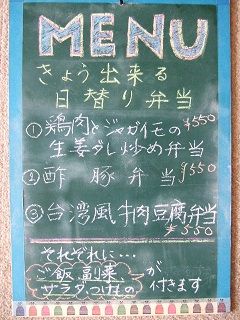 MENU
きょう出来る
日替り弁当
①鶏肉とジャガイモの ¥550
生姜ダレ炒め弁当
②酢豚弁当 ¥550
③台湾風牛肉豆腐弁当
¥550
それぞれに…
ご飯、副菜、が
サラダ、つけもの 付きます